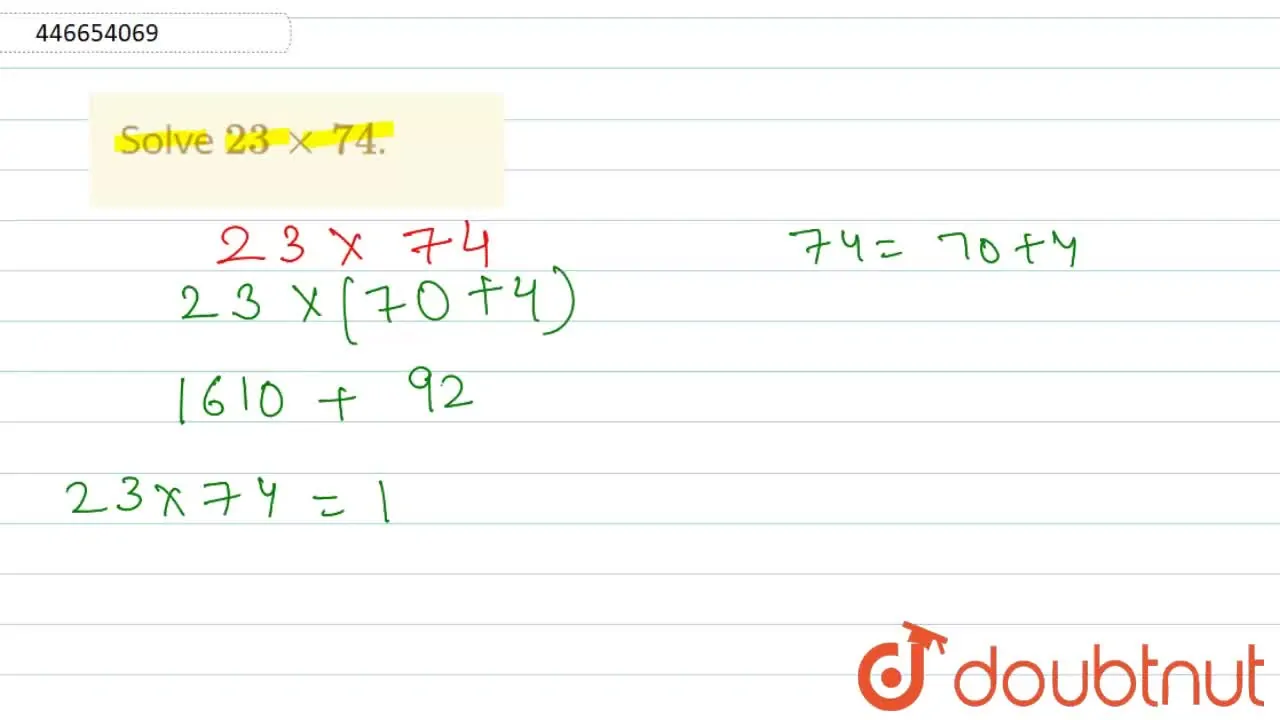 446654069
Solve 23 × 74.
23 × 74
74 = 70 + 4
23 × (70 + 4)
1610 + 92
23 × 74 = 1
doubtnut